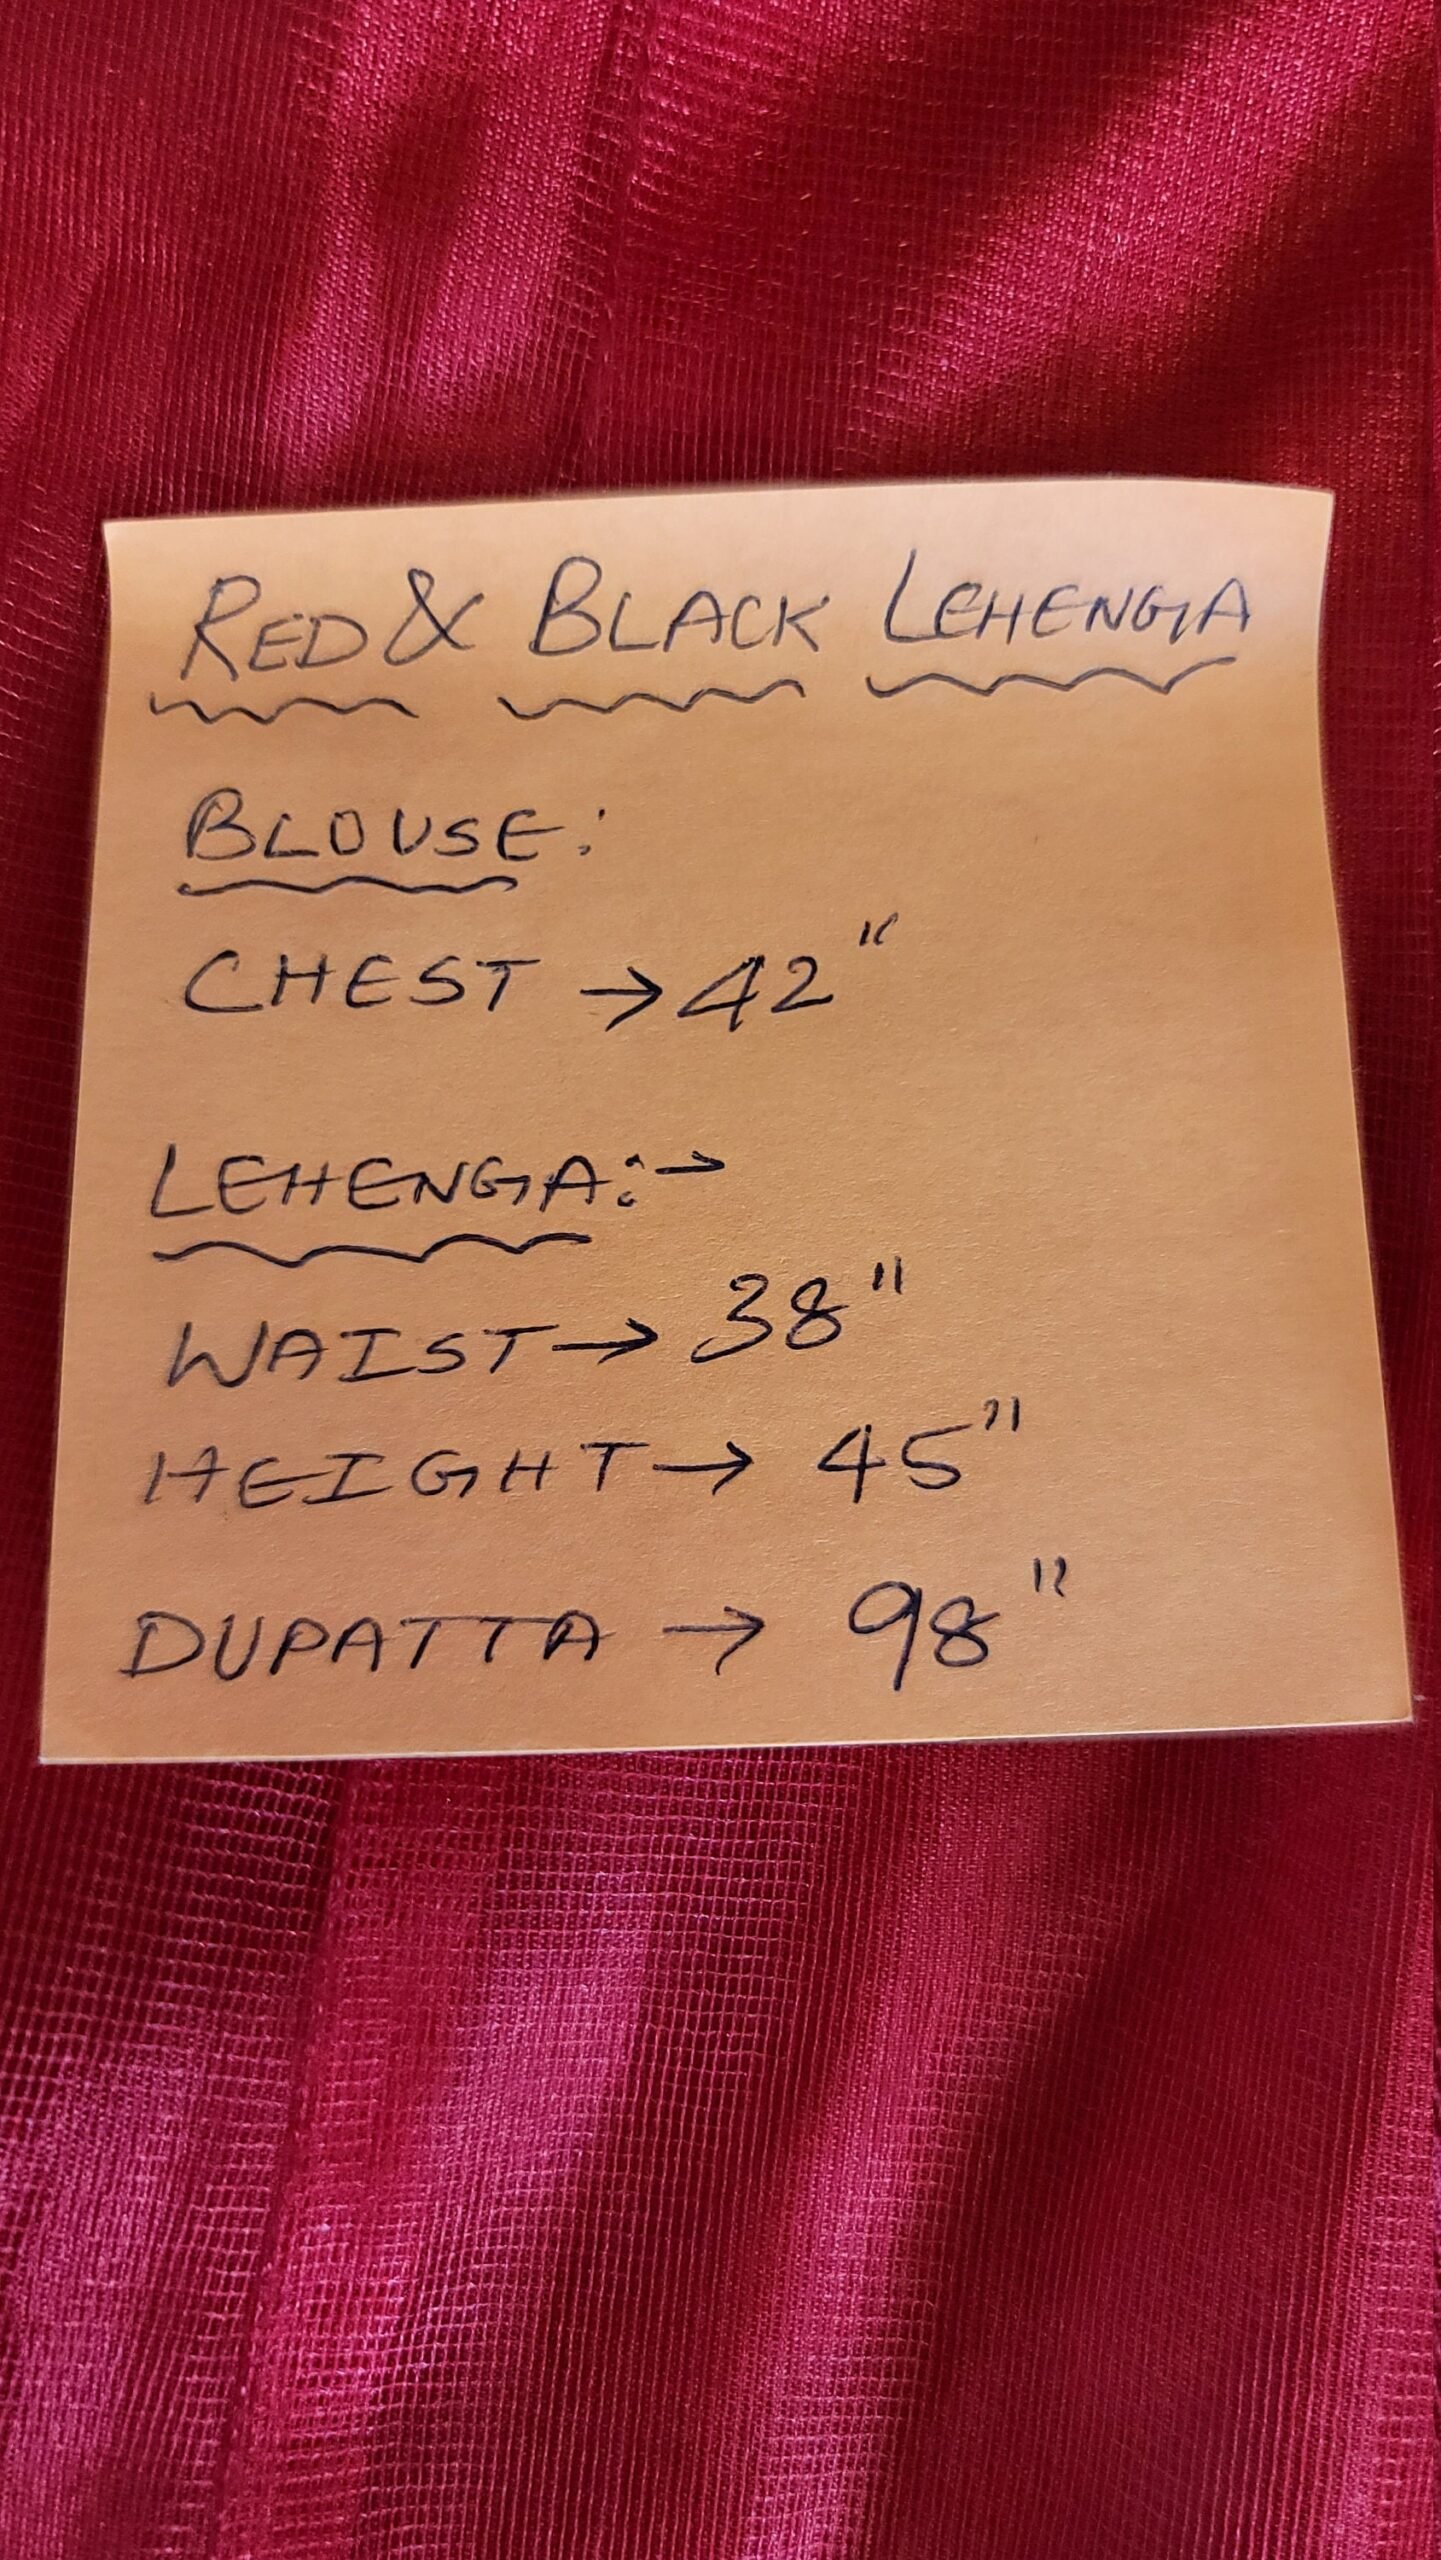 RED & BLACK LEHENGA
BLOUSE:
CHEST → 42"
LEHENGA:→
WAIST → 38"
HEIGHT → 45"
DUPATTA → 98"